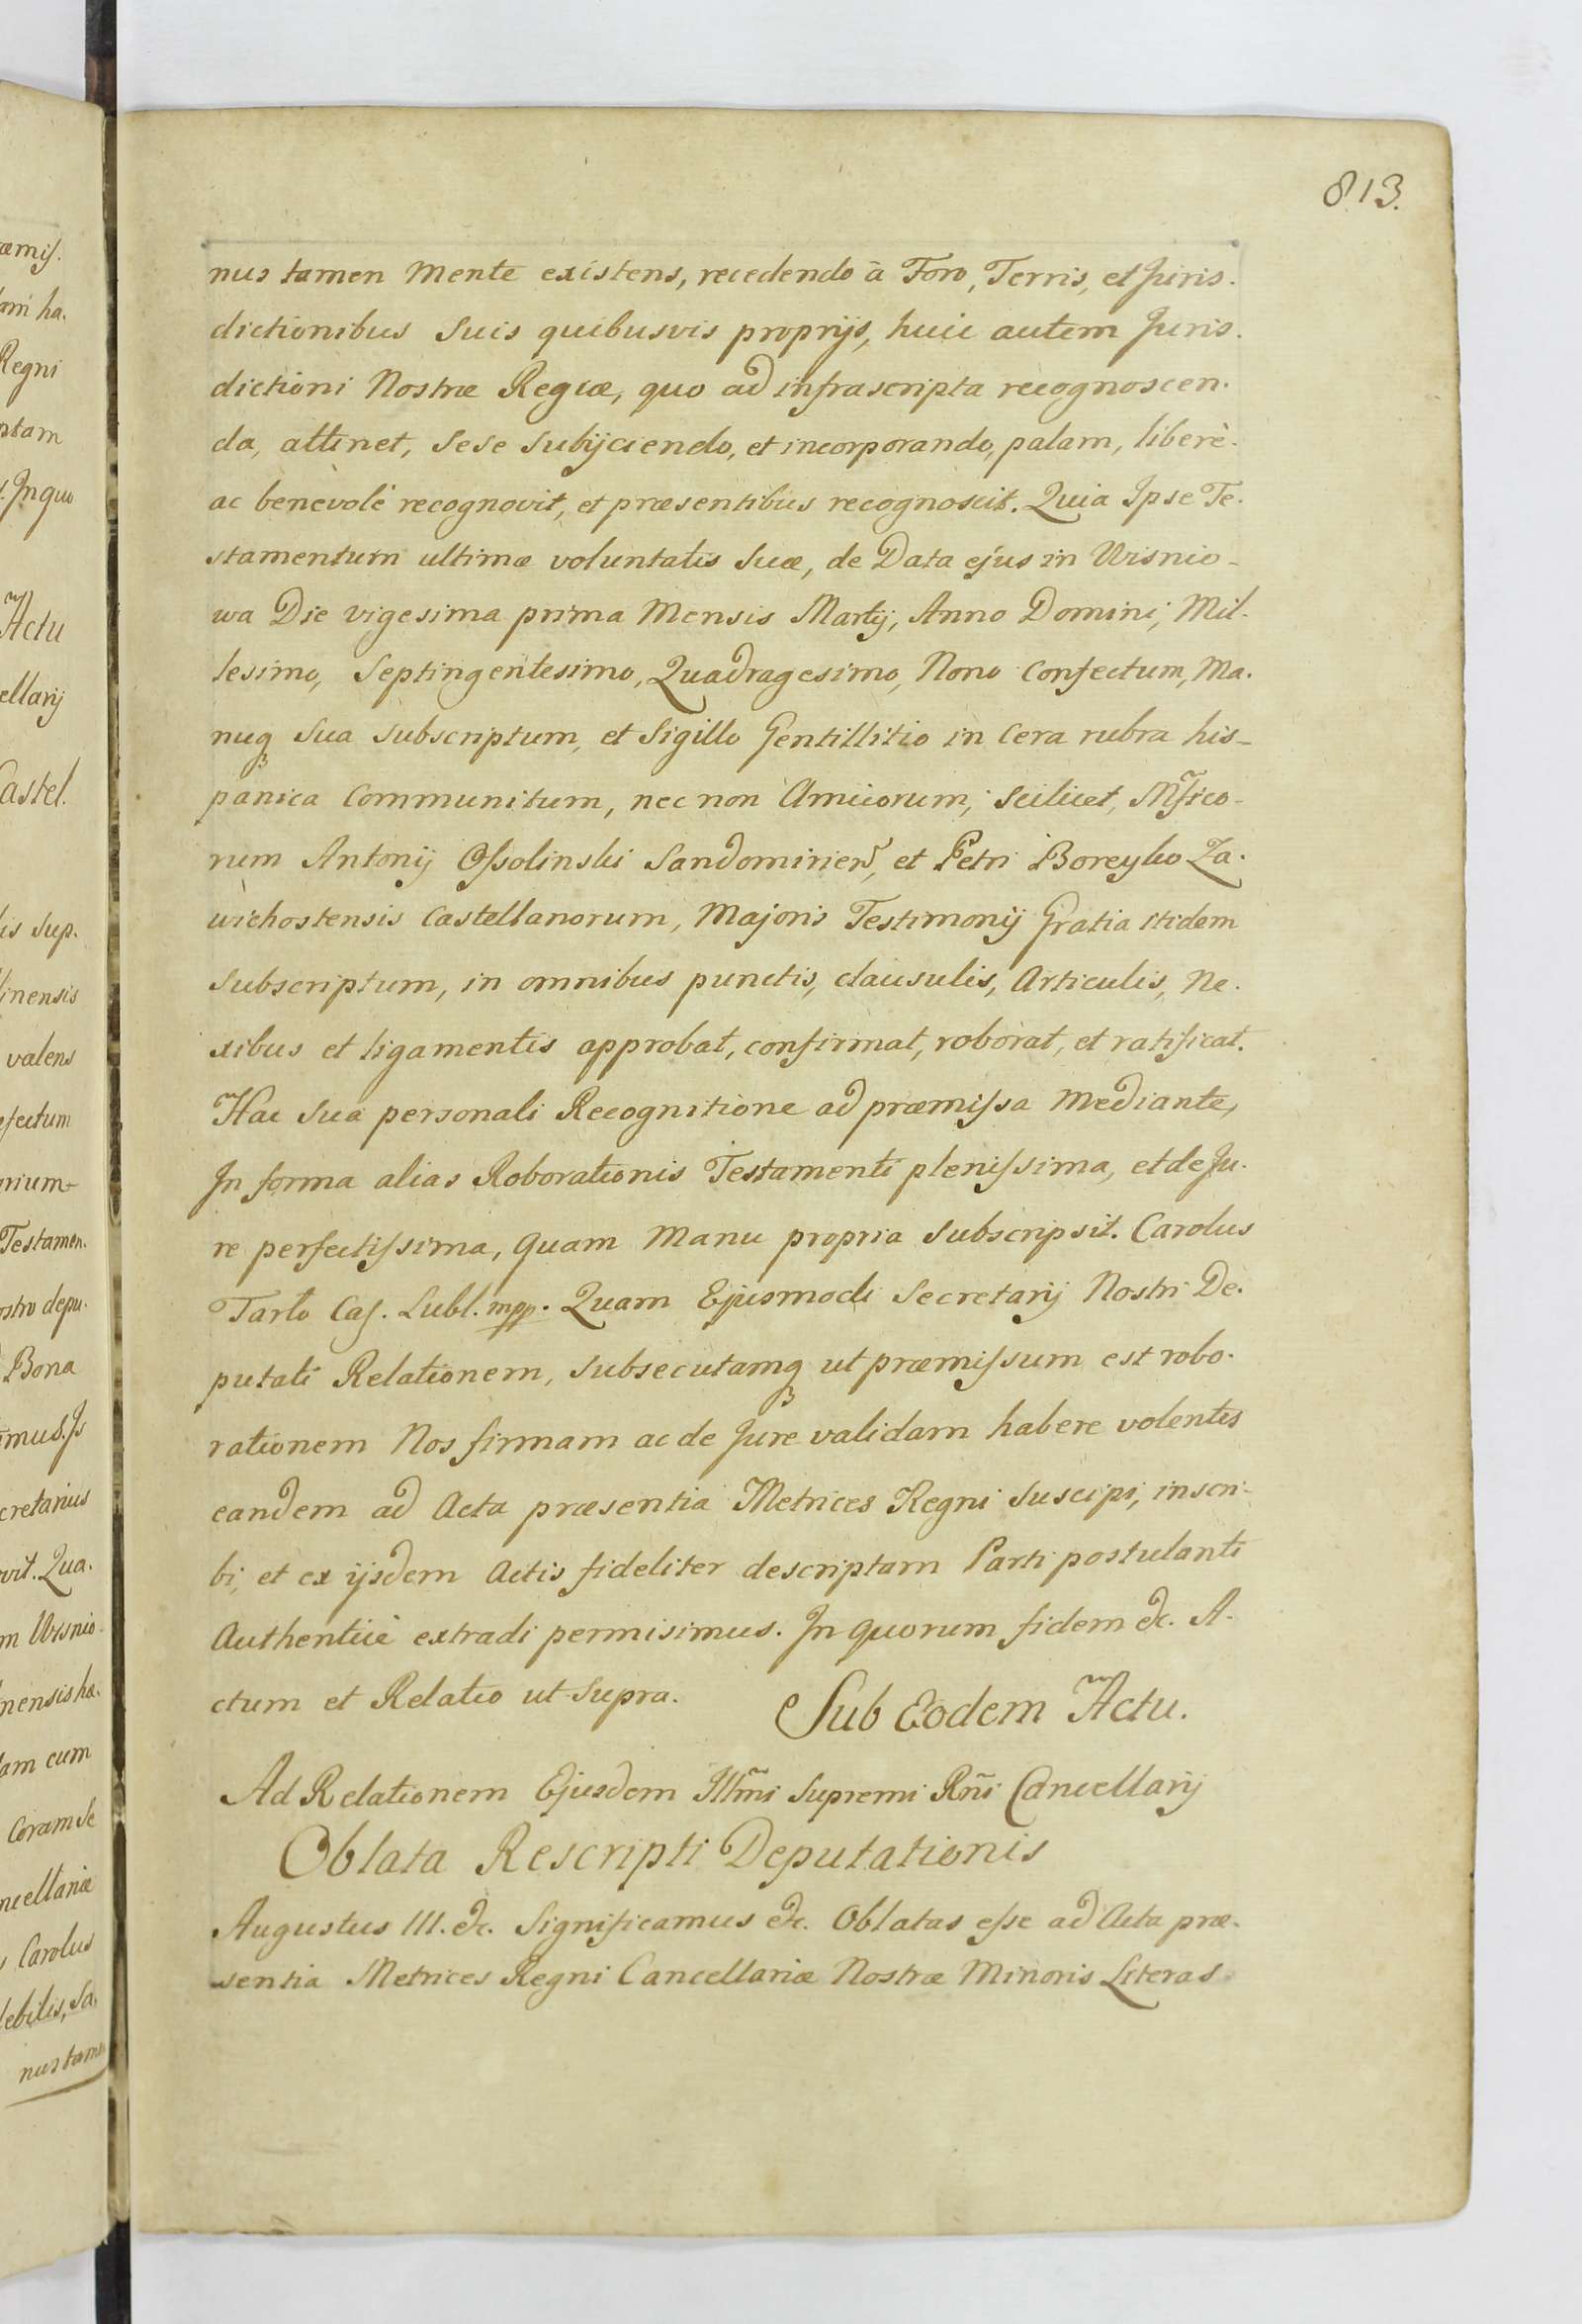 813.
nus tamen Mente existens, recedendo à Foro, Terris, et Juris.
dictionibus Suis quibusvis proprijs, huic autem Juris.
dictioni Nostræ Regiæ, quo ad infrascripta recognoscen.
da, attinet, sese subijciendo, et incorporando, palam, liberè.
ac benevolè recognovit, et præsentibus recognoscit. Quia Ipse Te.
stamentum ultimæ voluntatis Suæ, de Data ejus in Wisnio-
wa Die vigesima prima Mensis Martij, Anno Domini, Mil-
lesimo, Septingentesimo, Quadragesimo, Nono Confectum, Ma.
nuq₃ Sua subscriptum, et Sigillo Gentillitio in Cera rubra his-
panica Communitum, nec non Amicorum, Scilicet, Mfico-
rum Antonij Ossolinski Sandomiriens, et Petri Boreyko Za.
wichostensis Castellanorum, Majoris Testimonij Gratia itidem
subscriptum, in omnibus punctis, clausulis, Articulis, Ne.
xibus et ligamentis approbat, confirmat, roborat, et ratificat.
Hac Sua personali Recognitione ad præmissa Mediante,
In forma alias Roborationis Testamenti plenissima, et de Ju.
re perfectissima, Quam Manu propria Subscripsit. Carolus
Tarło Cas. Lubl. mpp. Quam Ejusmodi Secretarij Nostri De.
putati Relationem, Subsecutamq₃ ut præmissum est robo.
rationem Nos firmam ac de Jure validam habere volentes
eandem ad Acta præsentia Metrices Regni Suscipi, inscri-
bi, et ex ijsdem Actis fideliter descriptam Parti postulanti
Authenticè extradi permisimus. In Quorum fidem &c. A-
ctum et Relatio ut Supra.
Sub Eodem Actu.
Ad Relationem Ejusdem Illm̃i Supremi Rñi Cancellarij
Oblata Rescripti Deputationis
Augustus III. &c. Significamus &c. Oblatas esse ad Acta præ.
sentia Metrices Regni Cancellariæ Nostræ Minoris Literas